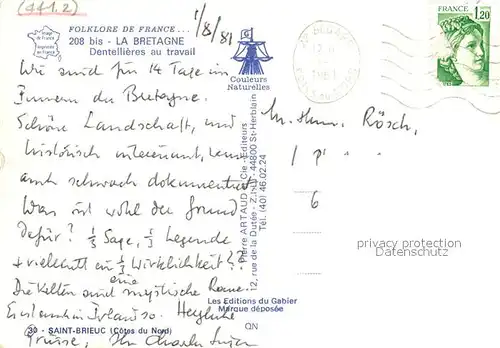 (441.2)
FOLKLORE DE FRANCE...
208 bis - LA BRETAGNE
Dentellières au travail
Image de France
Imprimé en France
1/8/81
Couleurs Naturelles
FRANCE
1,20
Wir sind für 14 Tage im
Innern der Bretagne.
Schöne Landschaft, und
historisch interessant, wenn
auch schwach dokumentiert
Was ist wohl der Grund
dafür? 1/3 Sage, 1/3 Legende
+ vielleicht ein 1/3 Wirklichkeit??
Die Kelten sind eine mystische Rasse.
Es ist auch in Irland so. Herzliche
Grüsse, Ihr Charles
Pierre ARTAUD & Cie - Editeurs
12, rue de la Dutée - Z.I.L. - 44800 St-Herblain
Tél. (40) 46.02.24
Les Editions du Gabier
Marque déposée
20 - SAINT-BRIEUC (Côtes du Nord)
QN
Rösch,
6
privacy protection
Datenschutz